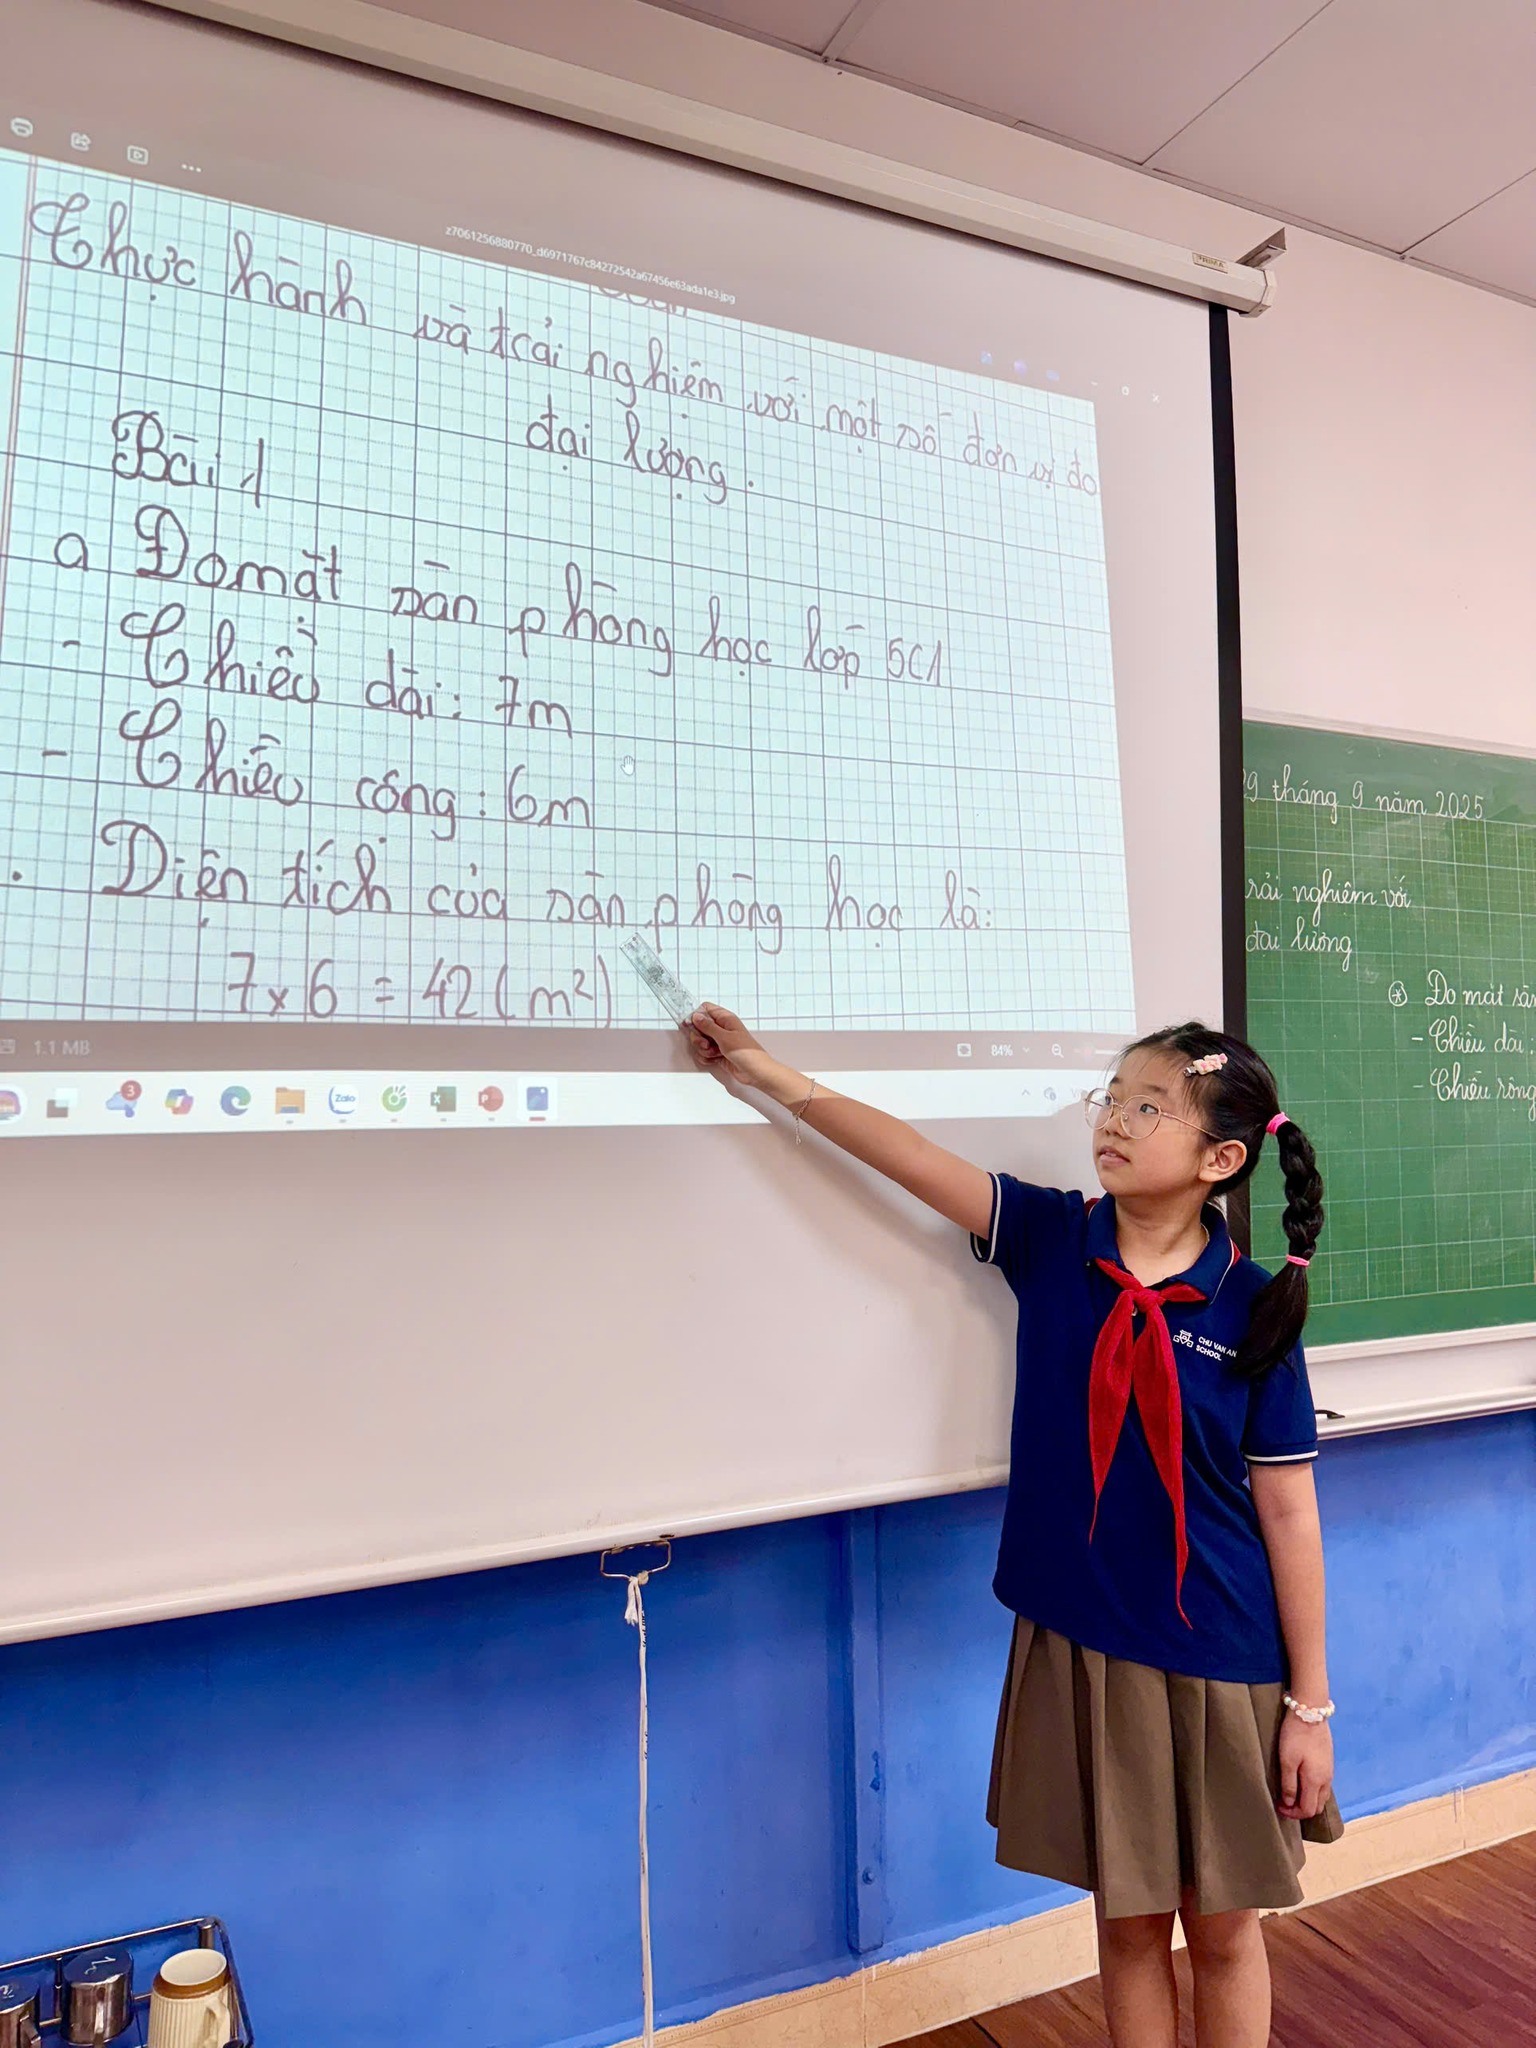 z7061256880770_d6971767c84272542a67456e63ada1e3.jpg
Thực hành và trải nghiệm với một số đơn vị đo
đại lượng.
Bài 1
a Đo mặt sàn phòng học lớp 5C1
- Chiều dài: 7m
- Chiều rộng: 6m
. Diện tích của sàn phòng học là:
7 x 6 = 42 (m²)
1.1 MB
84%
3
Zalo
tháng 9 năm 2025
rải nghiệm với
đại lượng
* Đo mặt sàn
- Chiều dài:
- Chiều rộng
CHU VAN AN
SCHOOL